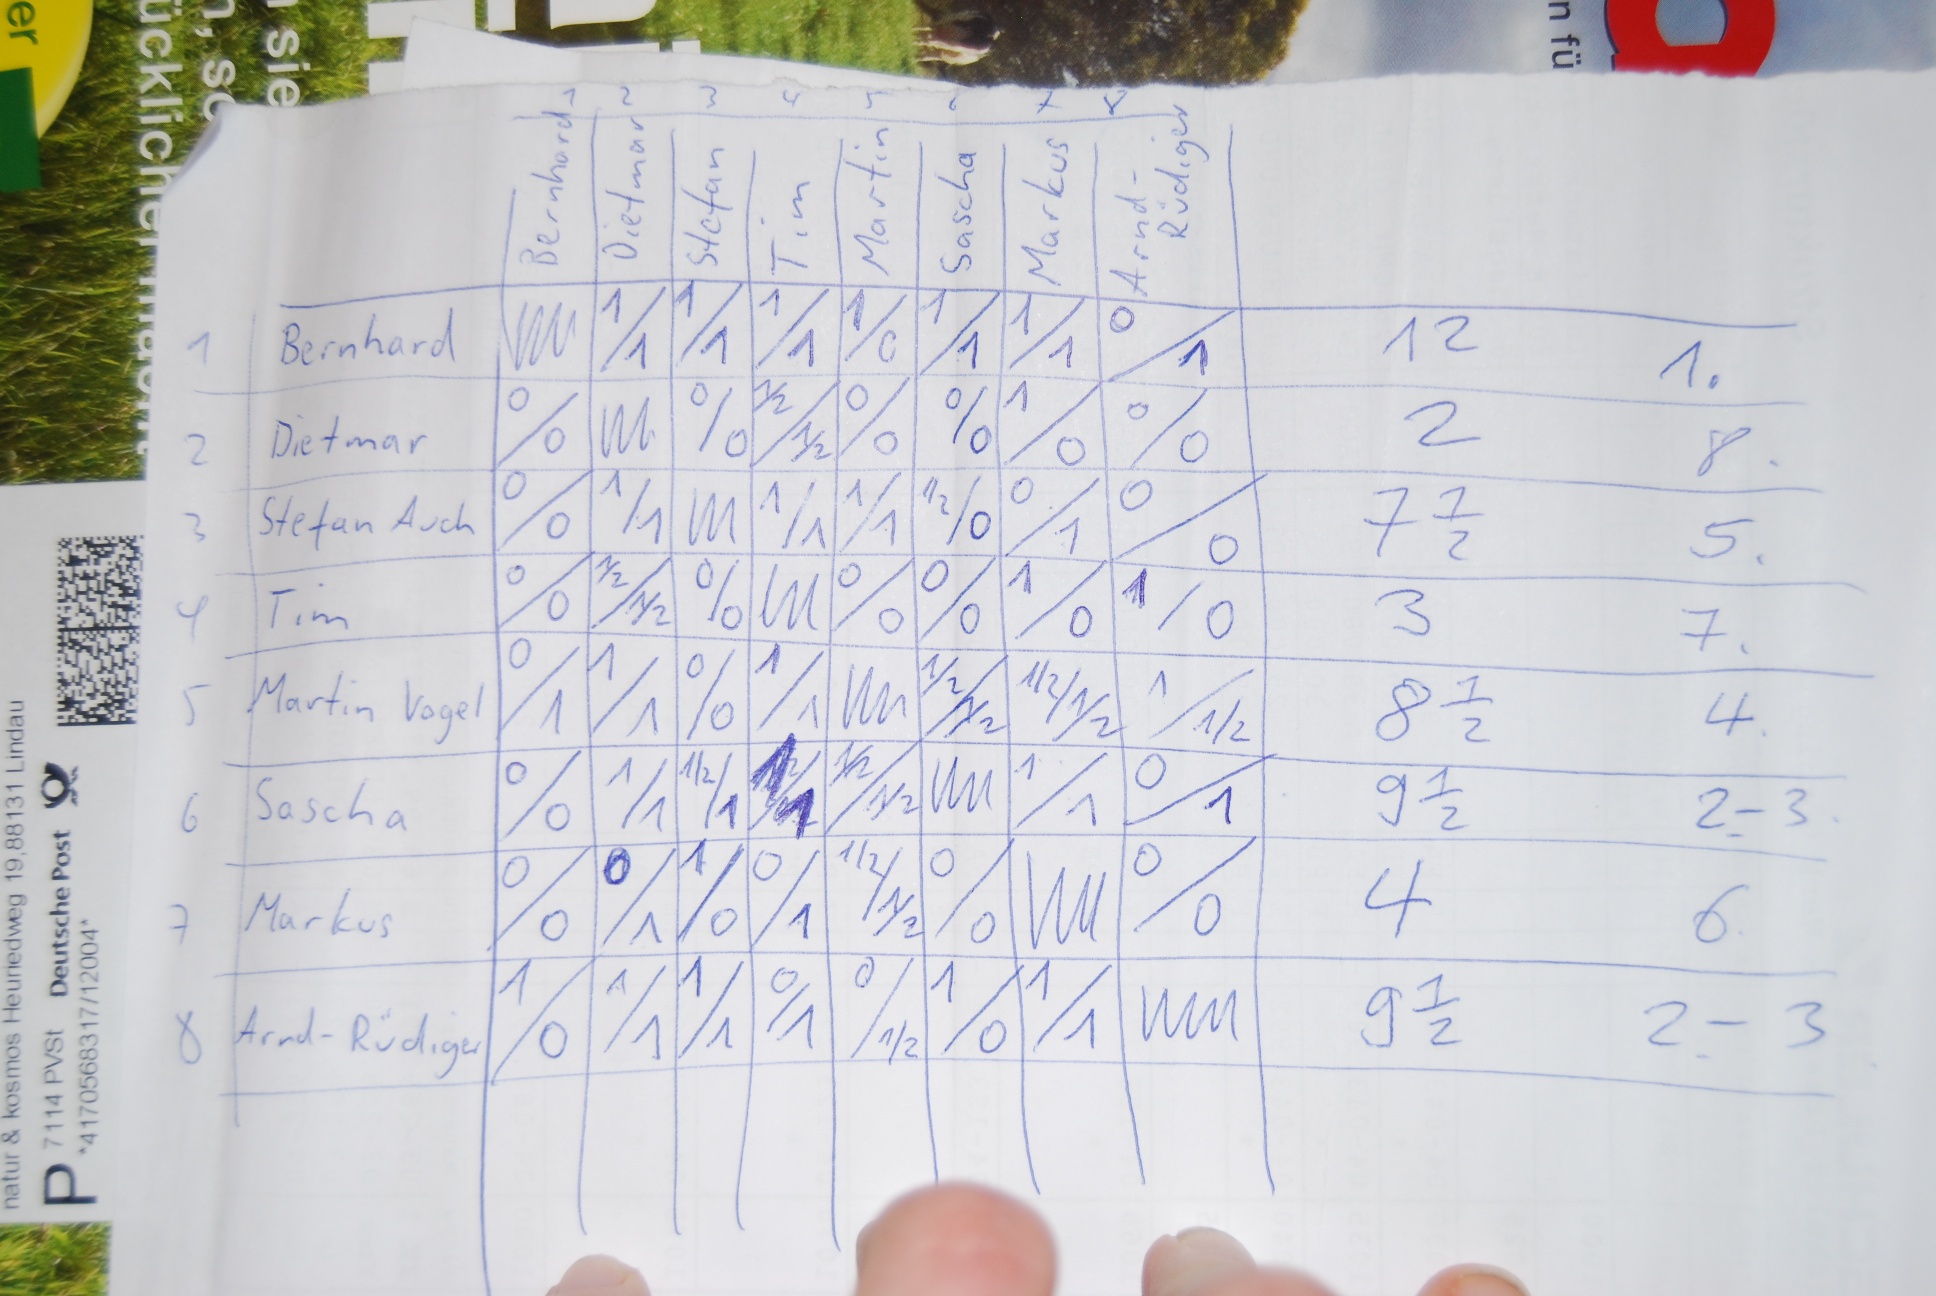 er
ücklicher
n, so
n sie
n fü
1 2 3 4 5 6 7 8
Bernhard Dietmar Stefan Tim Martin Sascha Markus Arnd-Rüdiger
1 Bernhard 1/1 1/1 1/1 1/0 1/1 1/1 0/1 12 1.
2 Dietmar 0/0 0/0 1/2/1/2 0/0 0/0 1/0 0/0 2 8.
3 Stefan Auch 0/0 1/1 1/1 1/1 1/2/0 0/1 0/0 7 1/2 5.
4 Tim 0/0 1/2/1/2 0/0 0/0 0/0 1/0 1/0 3 7.
5 Martin Vogel 0/1 1/1 0/0 1/1 1/2/1/2 1/2/1/2 1/1/2 8 1/2 4.
6 Sascha 0/0 1/1 1/2/1 1/1 1/2/1/2 1/1 0/1 9 1/2 2.-3.
7 Markus 0/0 0/1 1/0 0/1 1/2/1/2 0/0 0/0 4 6.
8 Arnd-Rüdiger 1/0 1/1 1/1 0/1 0/1/2 1/0 1/1 9 1/2 2.-3
natur & kosmos Heuriedweg 19,88131 Lindau
P 7114 PVSt Deutsche Post
*4170568317/12004*